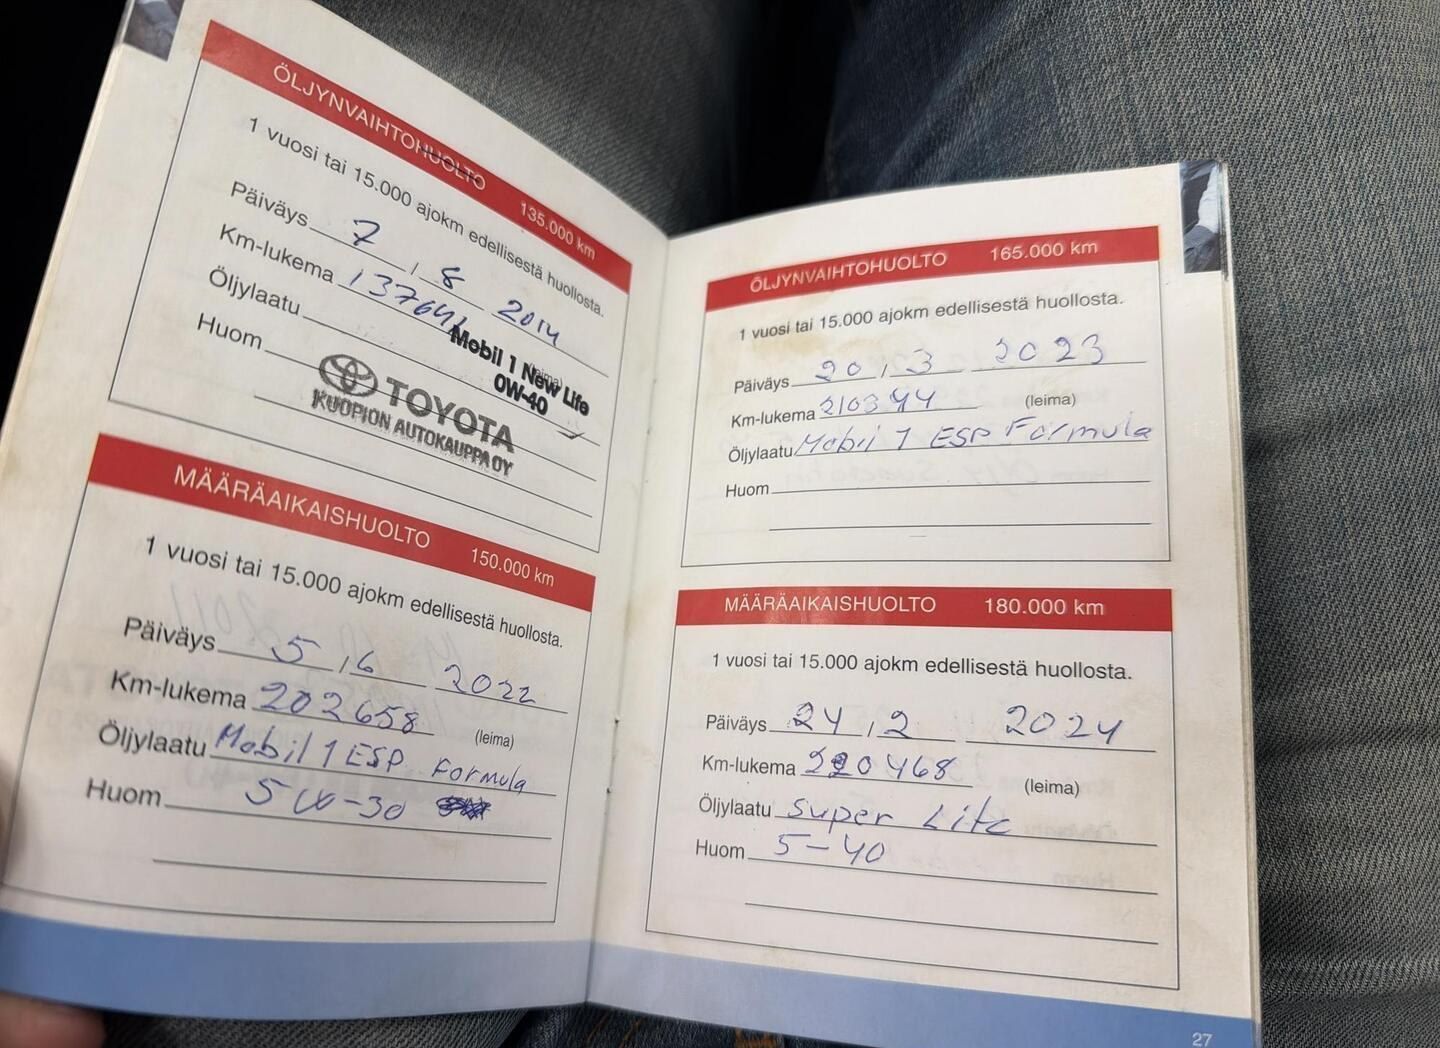 ÖLJYNVAIHTOHUOLTO 135.000 km
1 vuosi tai 15.000 ajokm edellisestä huollosta.
Päiväys 7 / 8 2014
Km-lukema 137641
Öljylaatu Mobil 1 New Life
0W-40
Huom
TOYOTA
KUOPION AUTOKAUPPA OY
MÄÄRÄAIKAISHUOLTO 150.000 km
1 vuosi tai 15.000 ajokm edellisestä huollosta.
Päiväys 5 / 6 2022
Km-lukema 202658 (leima)
Öljylaatu Mobil 1 ESP Formula
Huom 5W-30
ÖLJYNVAIHTOHUOLTO 165.000 km
1 vuosi tai 15.000 ajokm edellisestä huollosta.
Päiväys 20 / 3 2023
Km-lukema 210344 (leima)
Öljylaatu Mobil 1 ESP Formula
Huom
MÄÄRÄAIKAISHUOLTO 180.000 km
1 vuosi tai 15.000 ajokm edellisestä huollosta.
Päiväys 24 / 2 2024
Km-lukema 220468 (leima)
Öljylaatu Super
Huom 5-40
27